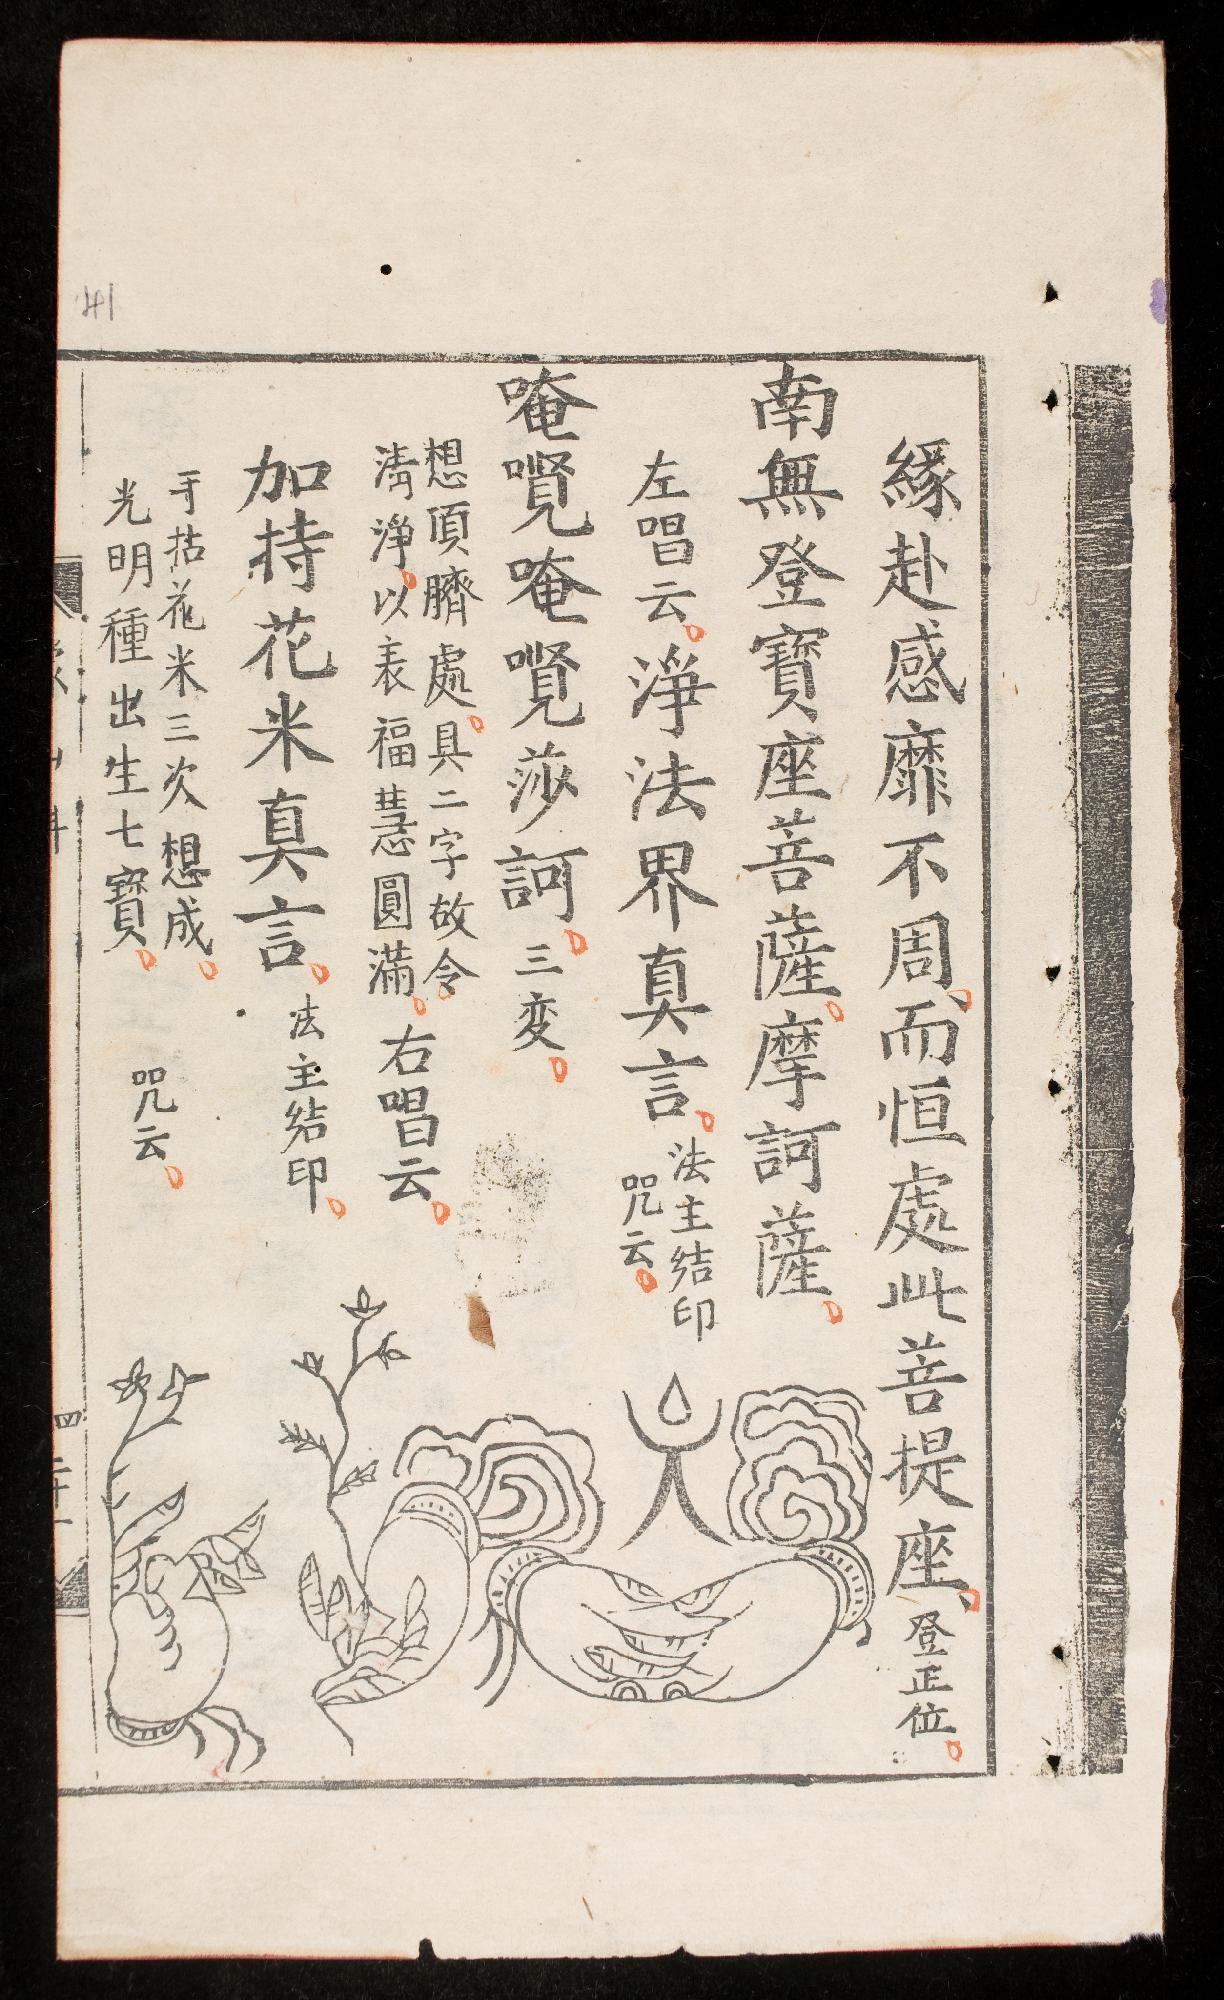 緣赴感靡不周、而恒處此菩提座、登正位。
南無登寶座菩薩。摩訶薩。
左唱云。淨法界真言。法主結印
咒云。
唵㘕唵㘕莎訶。三変。
想頂臍處。具二字故令
清淨。以表福慧圓滿。右唱云。
加持花米真言。法主結印。
手拈花米三次想成。
光明種出生七寶。咒云。
四二十一